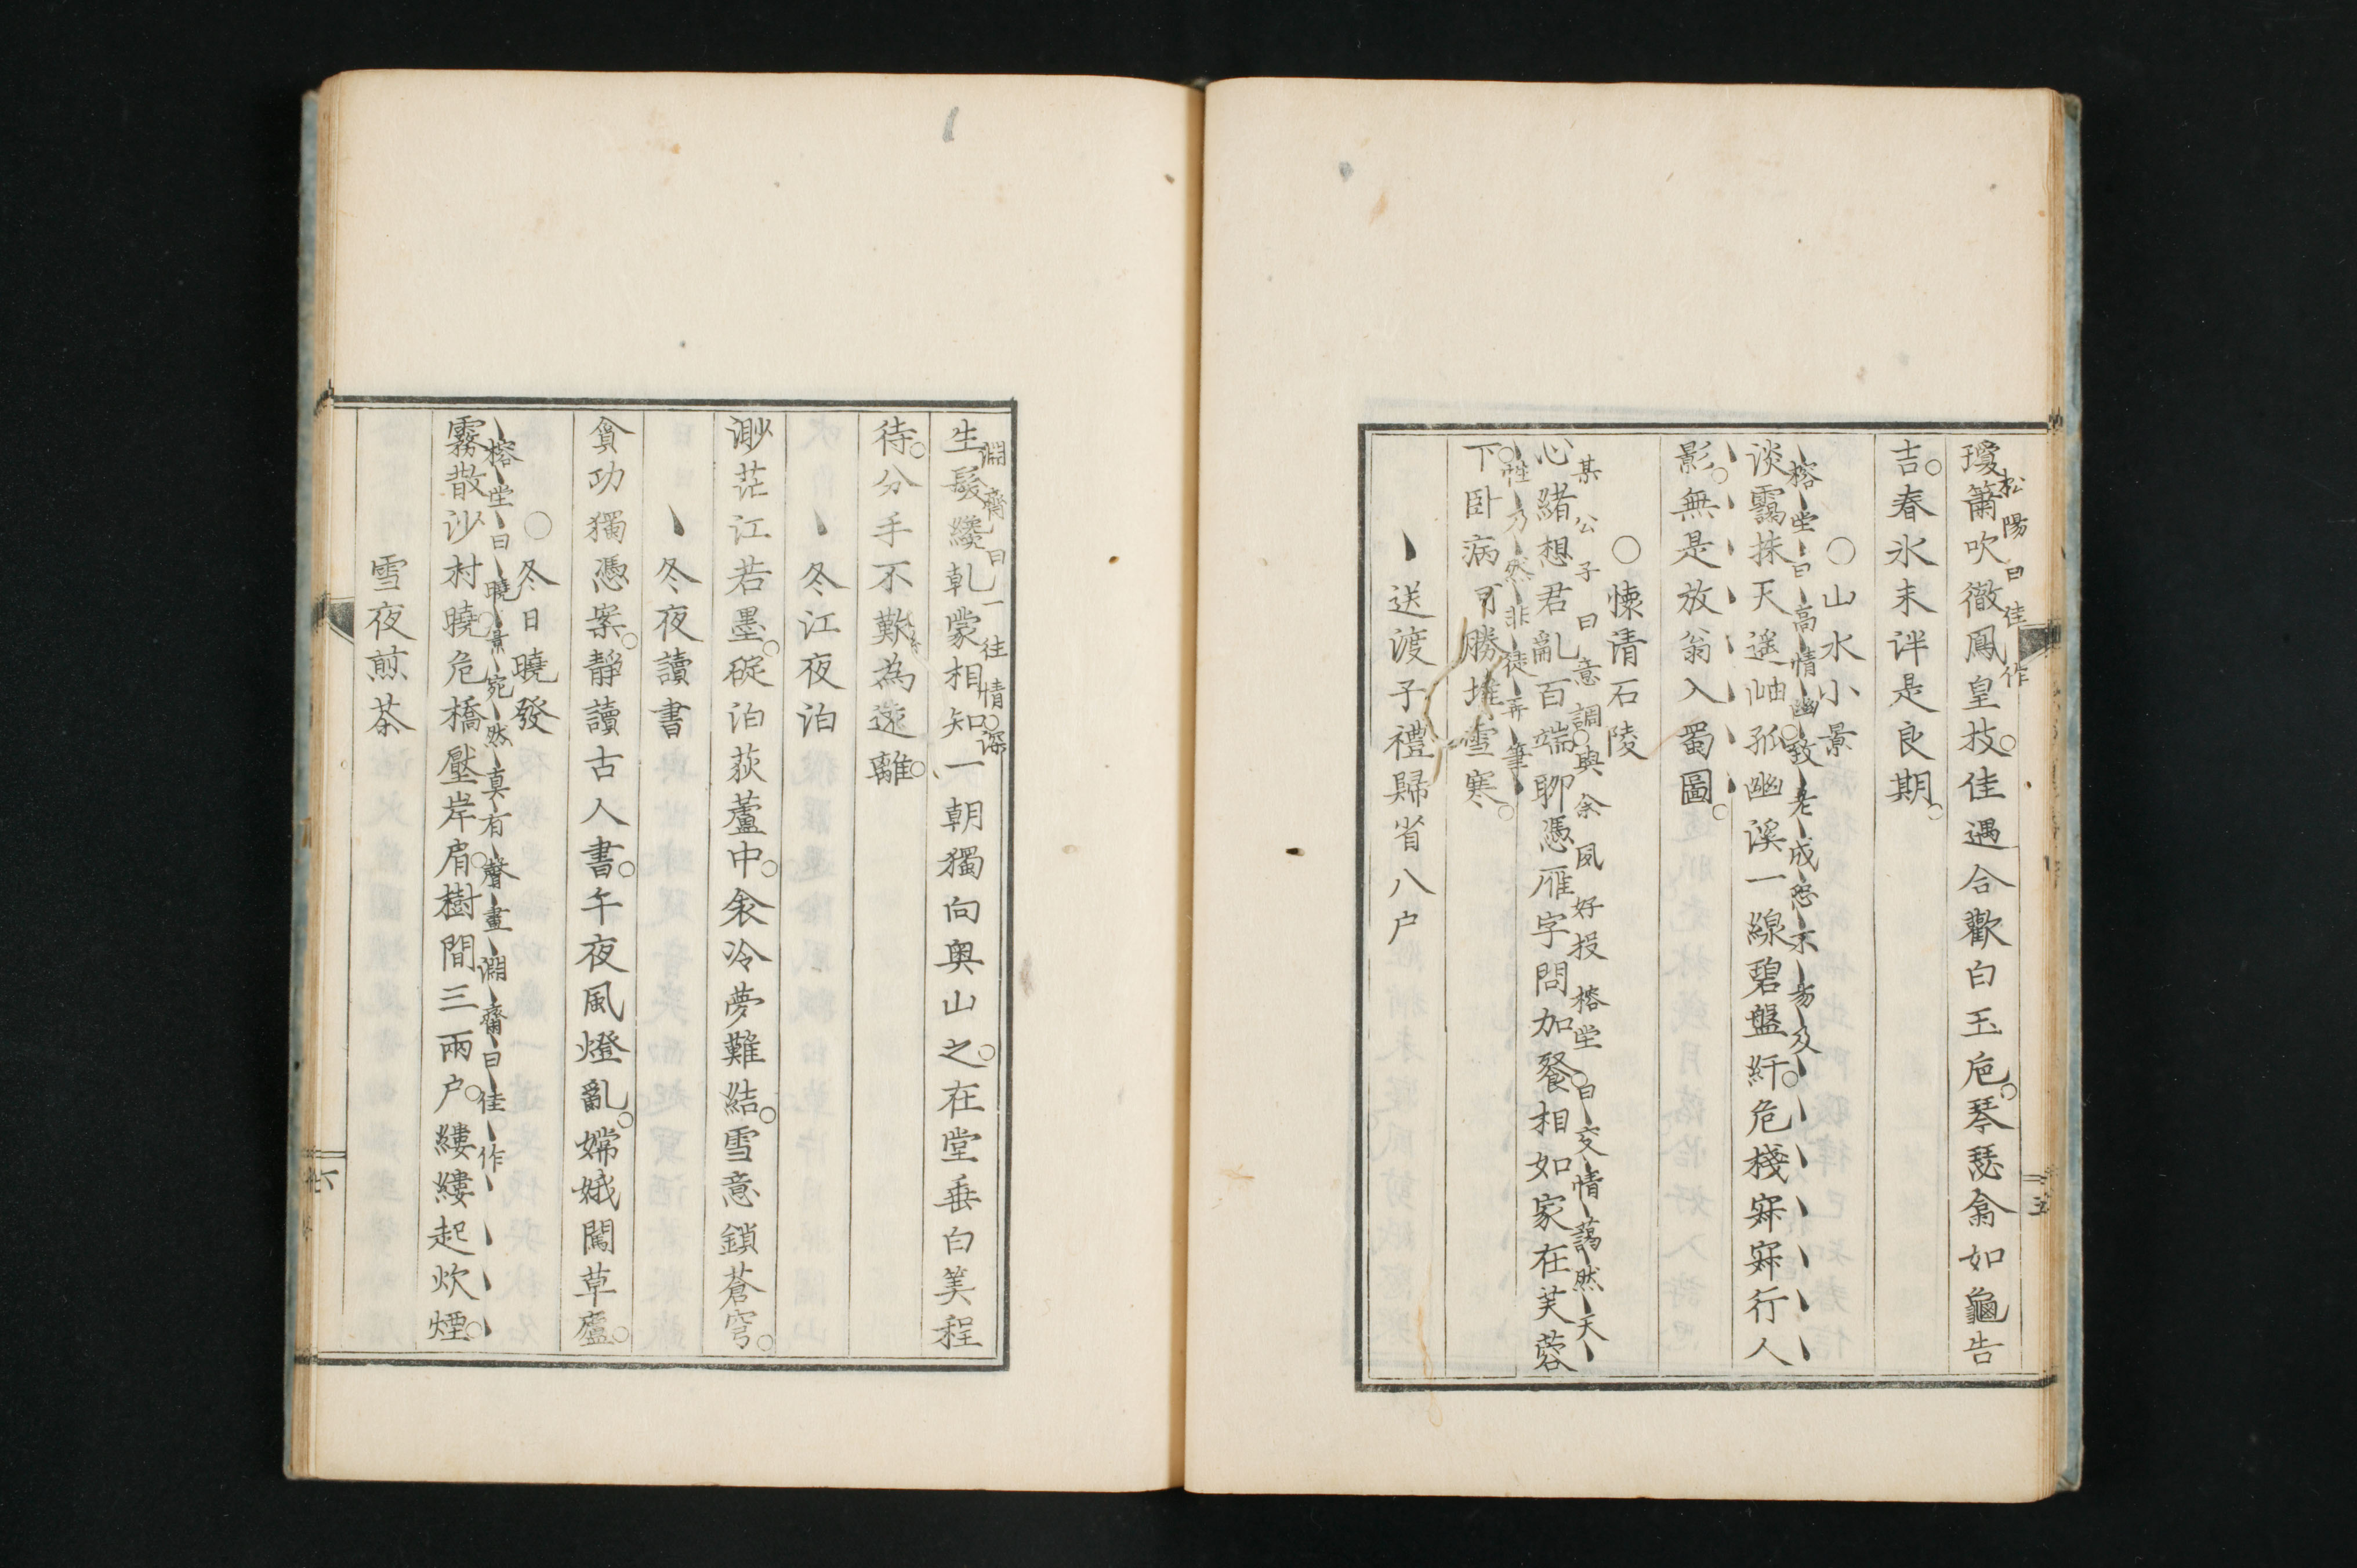 松陽曰佳作
瓊簫吹徹鳳皇技佳遇合歡白玉巵琴瑟翕如龜告
吉春氷未泮是良期
○山水小景
榕堂曰高情幽致老成恐不易及
淡靄抹天遥岫孤幽溪一線碧盤紆危棧寂寂行人
影無是放翁入蜀圖
○懷清石陵
某公子曰意調與余夙好投榕堂曰交情藹然天
心緒想君亂百端聊憑雁字問加餐相如家在芙蓉
性乃然非徒弄筆
下臥病可勝堆雪寒
送渡子禮歸省八户
五
淵齋曰一往情深
生髮纔乾蒙相知一朝獨向奥山之在堂垂白美程
待分手不歎為遠離
冬江夜泊
渺茫江若墨碇泊荻蘆中衾冷夢難結雪意鎖蒼穹
冬夜讀書
貪功獨憑案靜讀古人書午夜風燈亂嫦娥闖草廬
○冬日曉發
榕堂曰曉景宛然真有聲畫淵齋曰佳作
霧散沙村曉危橋壓岸肩樹間三兩户縷縷起炊煙
雪夜煎茶
六